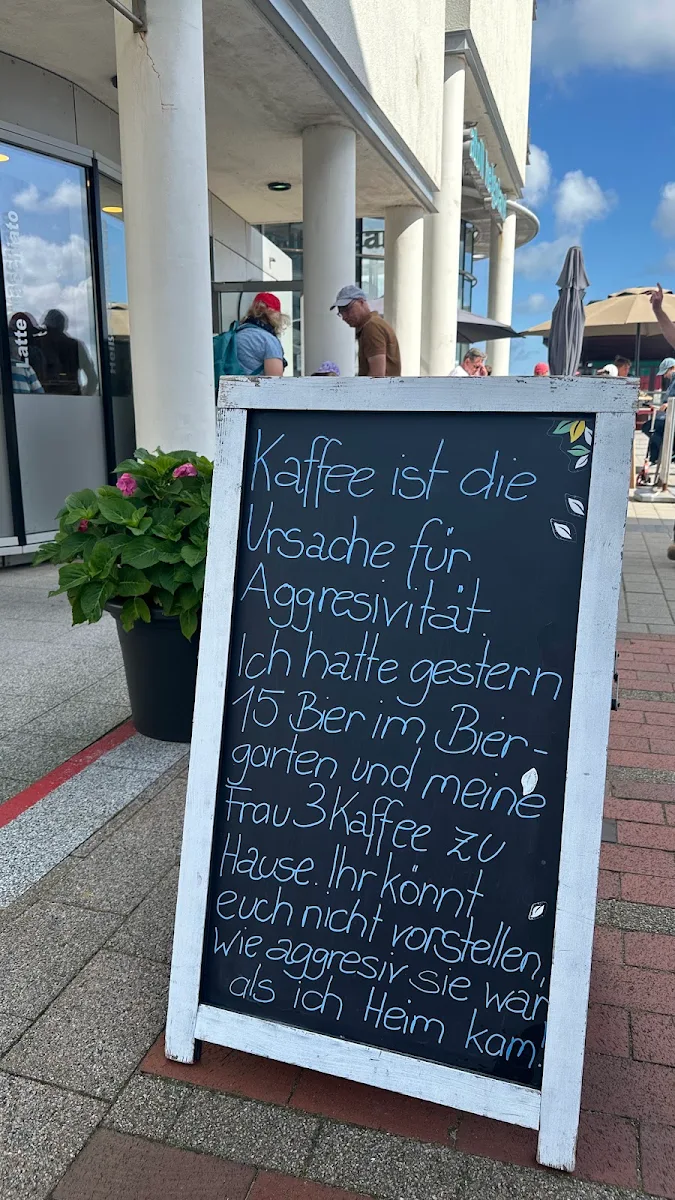 Latte
Kaffee ist die
Ursache für
Aggresivität.
Ich hatte gestern
15 Bier im Bier-
garten und meine
Frau 3 Kaffee zu
Hause. Ihr könnt
euch nicht vorstellen,
wie aggresiv sie war
als ich Heim kam!